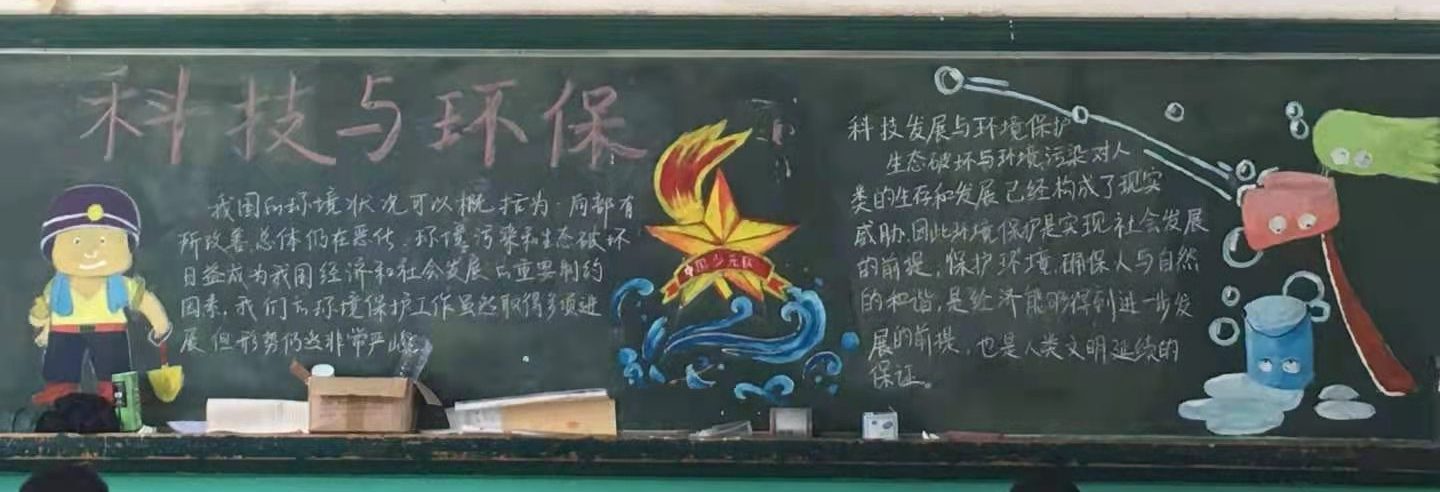 科技与环保
我国的环境状况可以概括为:局部有
所改善,总体仍在恶化,环境污染和生态破坏
日益成为我国经济和社会发展的重要制约
因素,我们的环境保护工作虽然取得多项进
展,但形势仍然非常严峻
中国少先队
科技发展与环境保护
生态破坏与环境污染对人
类的生存和发展已经构成了现实
威胁,因此环境保护是实现社会发展
的前提,保护环境,确保人与自然
的和谐,是经济能够得到进一步发
展的前提,也是人类文明延续的
保证。